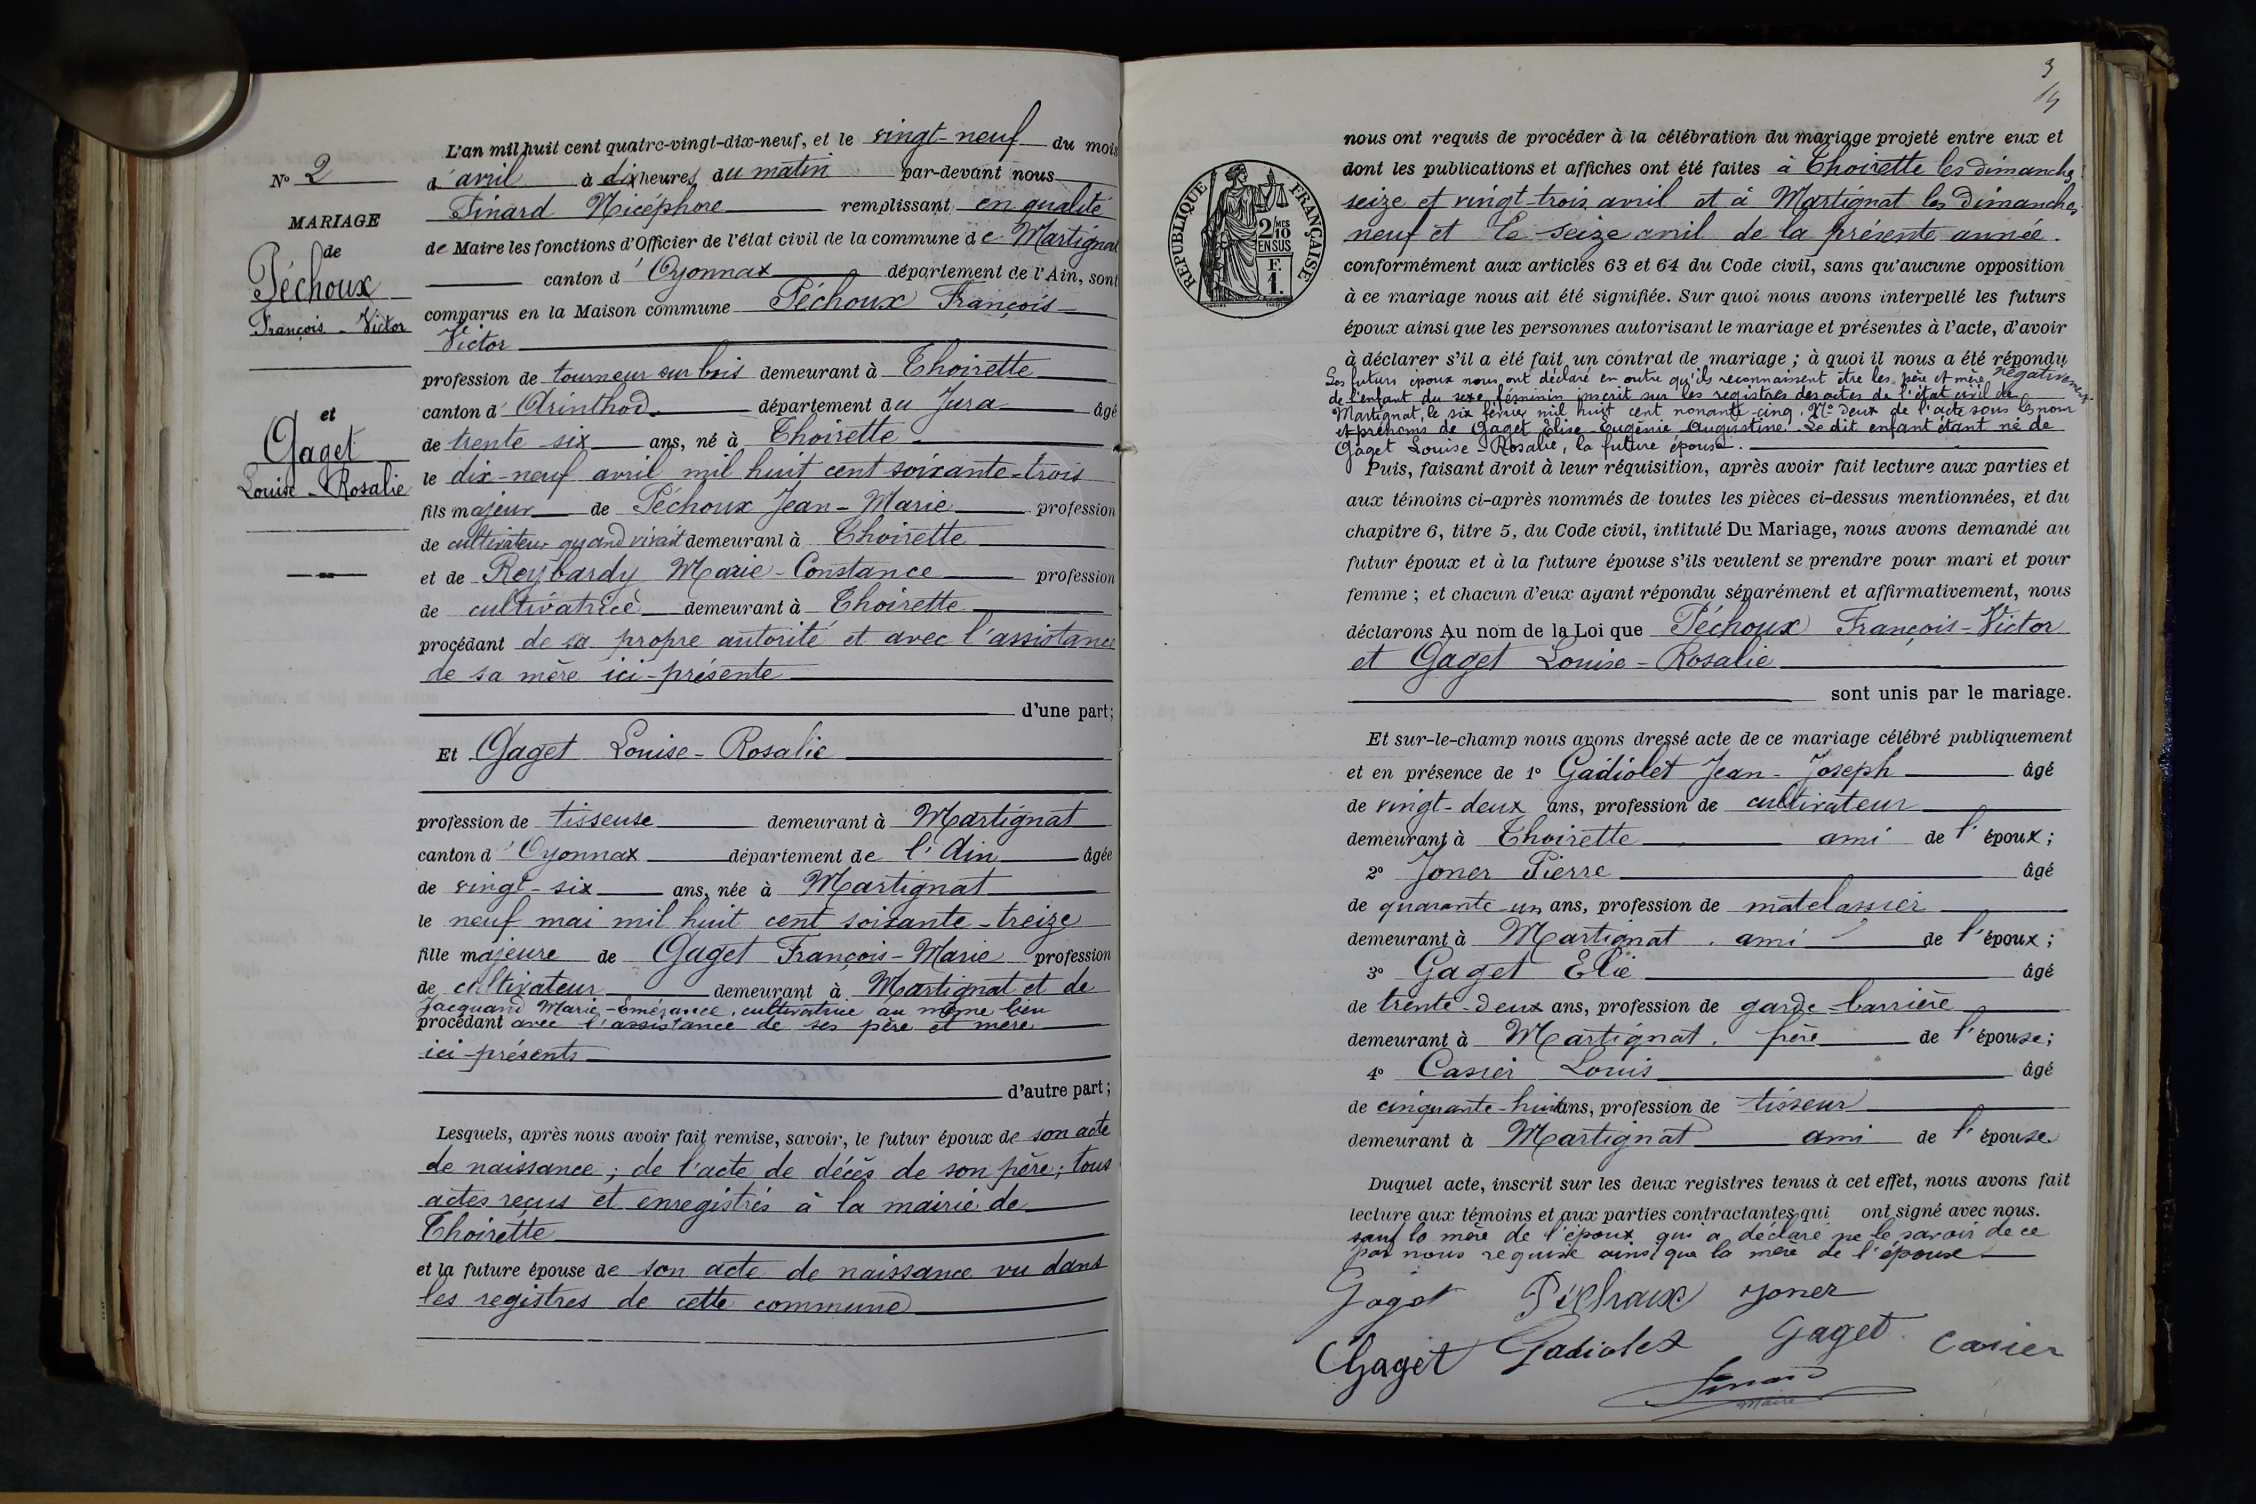 N° 2
MARIAGE
de
Péchoux
François - Victor
et
Gaget
Louise - Rosalie
L'an mil huit cent quatre-vingt-dix-neuf, et le vingt-neuf du mois
d'avril à dix heures du matin par-devant nous
Finard Nicéphore remplissant en qualité
de Maire les fonctions d'Officier de l'état civil de la commune de Martignat
canton d'Oyonnax département de l'Ain, sont
comparus en la Maison commune Péchoux François-
Victor
profession de tourneur sur bois demeurant à Thoirette
canton d'Arinthod département du Jura âgé
de trente-six ans, né à Thoirette
le dix-neuf avril mil huit cent soixante-trois
fils majeur de Péchoux Jean-Marie profession
de cultivateur quand vivait demeurant à Thoirette
et de Reybardy Marie-Constance profession
de cultivatrice demeurant à Thoirette
procédant de sa propre autorité et avec l'assistance
de sa mère ici-présente
d'une part;
Et Gaget Louise-Rosalie
profession de tisseuse demeurant à Martignat
canton d'Oyonnax département de l'Ain âgée
de vingt-six ans, née à Martignat
le neuf mai mil huit cent soixante-treize
fille majeure de Gaget François-Marie profession
de cultivateur demeurant à Martignat et de
Jacquand Marie-Emérance, cultivatrice au même lieu
procédant avec l'assistance de ses père et mère
ici-présents
d'autre part;
Lesquels, après nous avoir fait remise, savoir, le futur époux de son acte
de naissance; de l'acte de décès de son père; tous
actes reçus et enregistrés à la mairie de
Thoirette
et la future épouse de son acte de naissance vu dans
les registres de cette commune
3
nous ont requis de procéder à la célébration du mariage projeté entre eux et
dont les publications et affiches ont été faites à Thoirette les dimanches
seize et vingt-trois avril et à Martignat les dimanches
neuf et le seize avril de la présente année.
conformément aux articles 63 et 64 du Code civil, sans qu'aucune opposition
à ce mariage nous ait été signifiée. Sur quoi nous avons interpellé les futurs
époux ainsi que les personnes autorisant le mariage et présentes à l'acte, d'avoir
à déclarer s'il a été fait un contrat de mariage; à quoi il nous a été répondu
négativement.
Les futurs époux nous ont déclaré en outre qu'ils reconnaissent être les père et mère
de l'enfant du sexe féminin inscrit sur les registres des actes de l'état civil de
Martignat, le six février mil huit cent nonante-cinq, N° deux de l'acte sous les nom
et prénoms de Gaget Elise-Eugénie Augustine. Le dit enfant étant né de
Gaget Louise-Rosalie, la future épouse.
Puis, faisant droit à leur réquisition, après avoir fait lecture aux parties et
aux témoins ci-après nommés de toutes les pièces ci-dessus mentionnées, et du
chapitre 6, titre 5, du Code civil, intitulé Du Mariage, nous avons demandé au
futur époux et à la future épouse s'ils veulent se prendre pour mari et pour
femme; et chacun d'eux ayant répondu séparément et affirmativement, nous
déclarons Au nom de la Loi que Péchoux François-Victor
et Gaget Louise-Rosalie
sont unis par le mariage.
Et sur-le-champ nous avons dressé acte de ce mariage célébré publiquement
et en présence de 1° Gadiolet Jean-Joseph âgé
de vingt-deux ans, profession de cultivateur
demeurant à Thoirette ami de l'époux;
2° Joner Pierre âgé
de quarante-un ans, profession de matelassier
demeurant à Martignat, ami de l'époux;
3° Gaget Elie âgé
de trente-deux ans, profession de garde-barrière
demeurant à Martignat, frère de l'épouse;
4° Casier Louis âgé
de cinquante-huit ans, profession de tisseur
demeurant à Martignat ami de l'épouse
Duquel acte, inscrit sur les deux registres tenus à cet effet, nous avons fait
lecture aux témoins et aux parties contractantes qui ont signé avec nous.
sauf la mère de l'époux qui a déclaré ne le savoir de ce
par nous requise ainsi que la mère de l'épouse
Gaget Péchoux Joner
Gaget Gadiolet Gaget Casier
Finard
Maire
RÉPUBLIQUE FRANÇAISE
2/10 MES
EN SUS
F.
1.